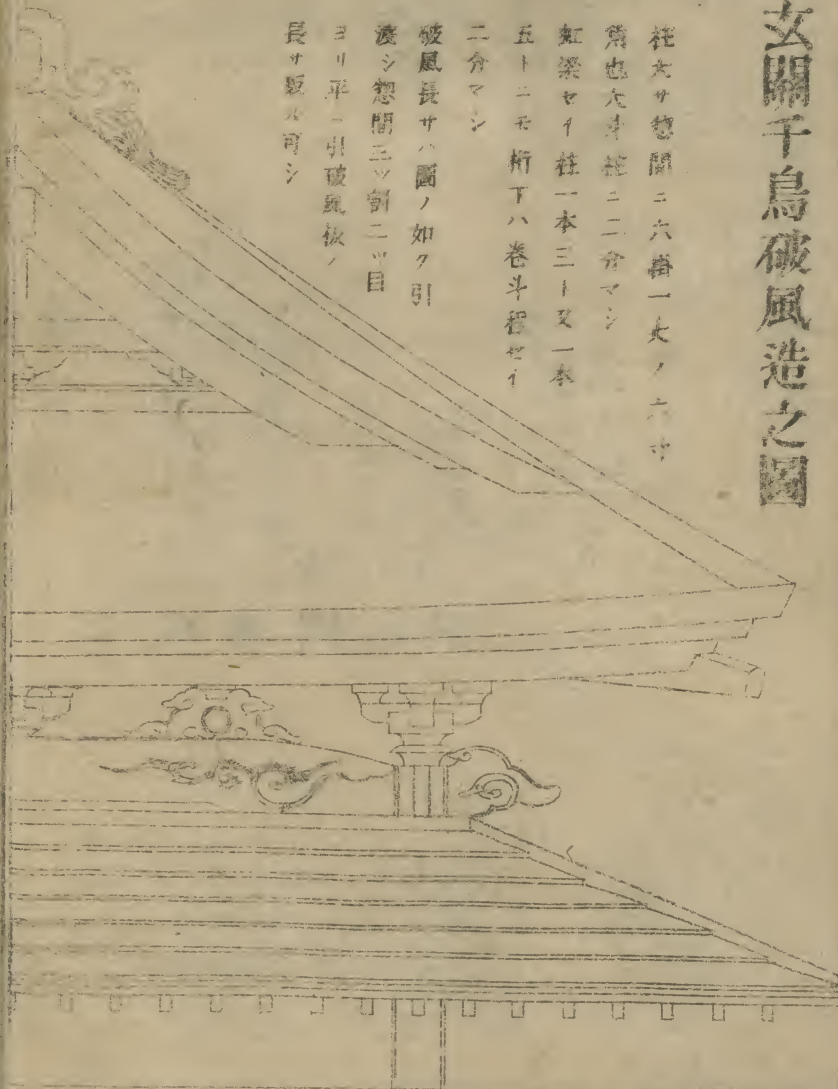 玄關千鳥破風造之圖
柱太サ惣間ニ六掛一丈ノ六寸
角也大斗柱ニ二分マシ
虹梁セイ柱一本三ト又一本
五トニモ桁下ハ巻斗程セイ
二分マシ
破風長サハ圖ノ如ク引
渡シ惣間三ツ割二ツ目
ヨリ平ニ引破風板ノ
長サ取ル可シ